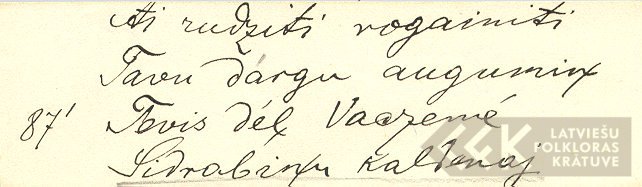 Ai rudzīti rogainīti
Tavu dārgu augumiņ
87' Tevis dēļ Vaczemē
Sidrabiņu kaldenaj
LATVIEŠU
FOLKLORAS
KRĀTUVE